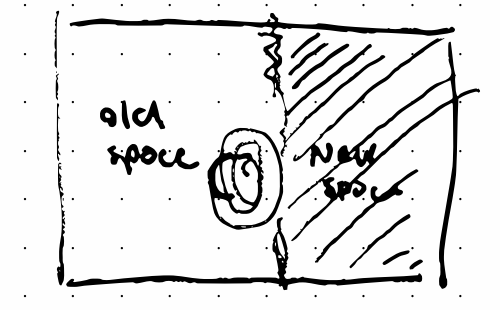 old
space
New
space